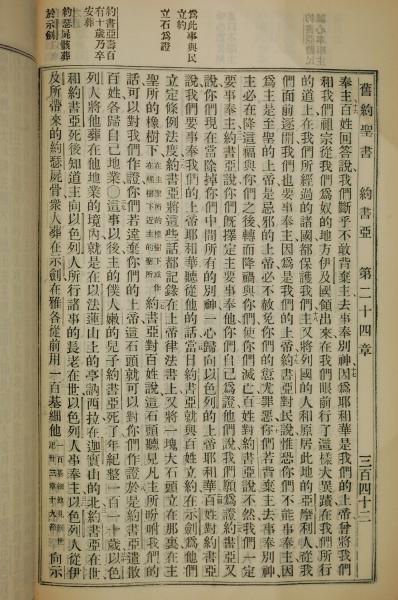 舊約聖書 約書亞 第二十四章 三百四十二
奉主百姓回答說我們斷乎不敢背棄主去事奉別神因爲耶和華是我們的上帝曾將我們
和我們祖宗從我們爲奴的地方伊及國領出來在我們眼前行了這樣大異蹟在我們所行
的道上在我們所經過的諸國都保護我們主又將列國的人和原居此地的亞摩利人從我
們面前逐開我們也要事奉主因爲是我們的上帝約書亞對民說惟恐你們不能事奉主因
爲主是至聖的上帝是忌邪的上帝必不赦免你們的愆尤罪惡你們若背棄主去事奉別神
主必在降這福與你們之後轉而降禍與你們使你們滅亡百姓對約書亞說不然我們一定
要事奉主約書亞說你們旣擇定主要事奉他你們自己爲證他們說我們願爲證約書亞又
說你們現在當除掉你們中間所有的別神一心歸向以色列的上帝耶和華百姓對約書亞
說我們要事奉我們的上帝耶和華聽從他的話當日約書亞就與百姓立約在示劍爲他們
立定條例法度約書亞將這些話都記錄在上帝律法書上又將一塊大石頭立在那裏在主
聖所的橡樹下在聖所的橡樹下或作在橡樹下近主的聖所約書亞對百姓說這石頭聽見凡主所吩咐我們的
話可以對我們作證你們若違棄你們的上帝這石頭就可以對你們作證於是約書亞遣散
百姓各歸自己地業〇這事以後主的僕人嫩的兒子約書亞死了年紀整一百一十歲以色
列人將他葬在他地業的境內就是在以法蓮山上的亭訥西拉在迦實山的北約書亞在世
和約書亞死後知道主向以色列人所行諸事的長老在世以色列人事奉主以色列人從伊
及所帶來的約瑟屍骨衆人葬在示劍在雅各從前用一百基細他向示
爲此事與民
立約
立石爲證
約書亞壽百
有十歲乃卒
安葬
約瑟屍骸葬
於示劍